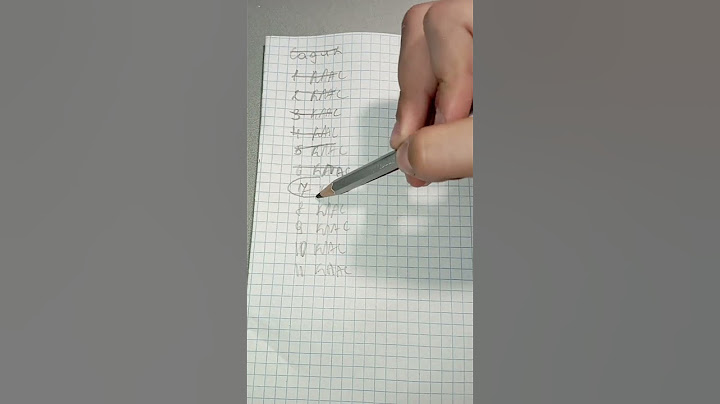 Садик
1 КЛАС
2 КЛАС
3 КЛАС
4 КЛАС
5 КЛАС
6 КЛАС
7
8 КЛАС
9 КЛАС
10 КЛАС
11 КЛАС